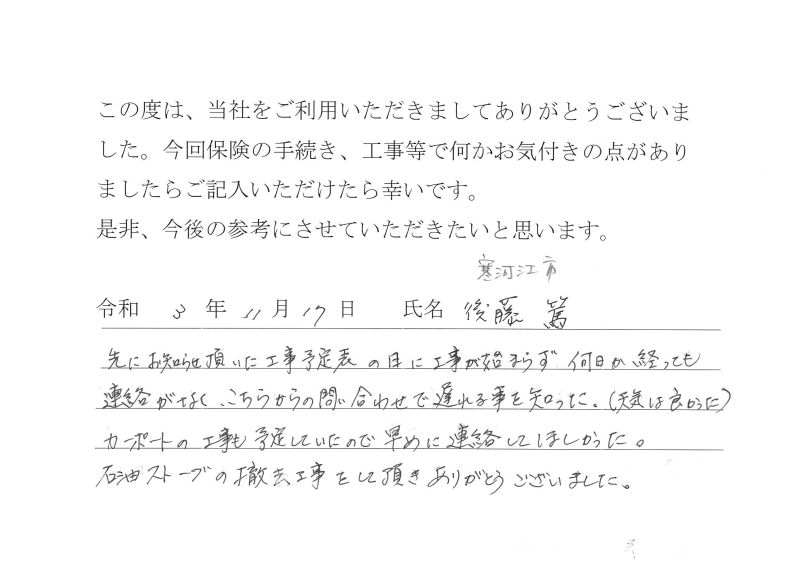 この度は、当社をご利用いただきましてありがとうございま
した。今回保険の手続き、工事等で何かお気付きの点があり
ましたらご記入いただけたら幸いです。
是非、今後の参考にさせていただきたいと思います。
寒河江市
令和 3 年 11 月 17 日 氏名 後藤 篤
先にお知らせ頂いた工事予定表の日に工事が始まらず 何日か経っても
連絡がなく、こちらからの問い合わせで遅れる事を知った。(天気は良かった)
カーポートの工事も予定していたので早めに連絡してほしかった。
石油ストーブの撤去工事をして頂きありがとうございました。